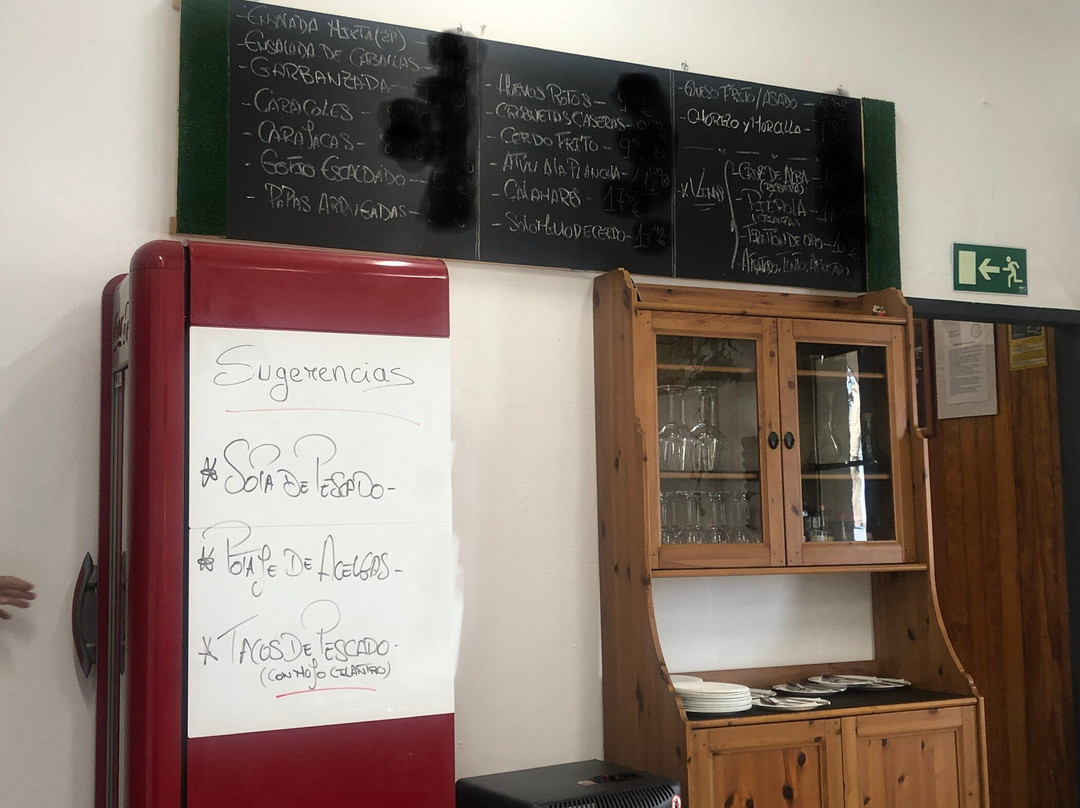 -ENSALADA MIXTA (2P)-
-ENSALADA DE CABALLAS-
-GARBANZADA-
-CARACOLES-
-CARAJACAS-
-GOFIO ESCALDADO-
-PAPAS ARRUGADAS-
-HUEVOS ROTOS-
-CROQUETAS CASERAS-
-CERDO FRITO-
-ATÚN A LA PLANCHA-
-CALAMARES- 17
-SOLOMILLO DE CERDO- 13
-QUESO FRITO/ASADO-
-CHORIZO Y MORCILLA-
*VINOS
-CRUZ DE ALBA-
(RIBERA)
(RIOJA)
-AFRUTADO, TINTO,
Sugerencias
* SOPA DE PESCADO-
* POTAJE DE ACELGAS-
* TACOS DE PESCADO-
(CON MOJO CILANTRO)